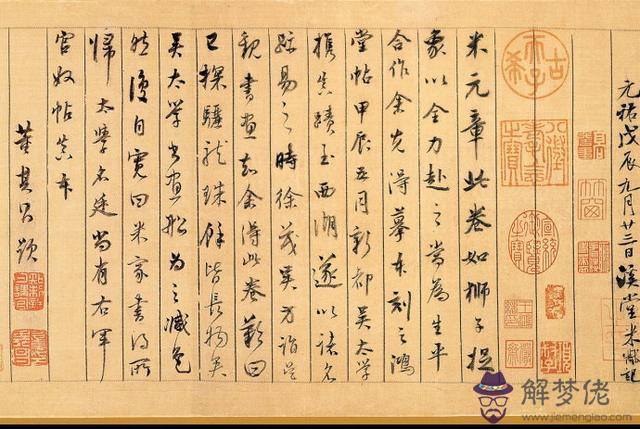 元祐戊辰九月廿三日溪堂米黻記
古希天子
八徵耄念之寶
宣統御覽之寶
米元章此卷如獅子捉
象以全力赴之當為生平
合作余先得摹本刻之鴻
堂帖甲辰五月新都吳太學
携真蹟至西湖遂以諸名
跡易之時徐茂吳方詣吳
觀書畫知余得此卷歎曰
已探驪龍珠餘皆長物矣
吳太學書畫船為之減色
然復自寬曰米家書得所
歸太學名廷尚有右軍
官奴帖真本
董其昌題
解梦佬
www.jiemenglao.com